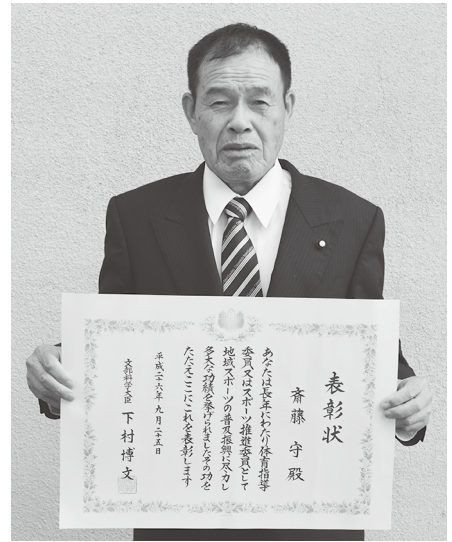 表彰状
斎藤 守 殿
あなたは長年にわたり体育指導
委員又はスポーツ推進委員として
地域スポーツの普及振興に尽力し
多大な功績を挙げられましたその功を
たたえここにこれを表彰します
平成二十六年九月二十五日
文部科学大臣 下村博文